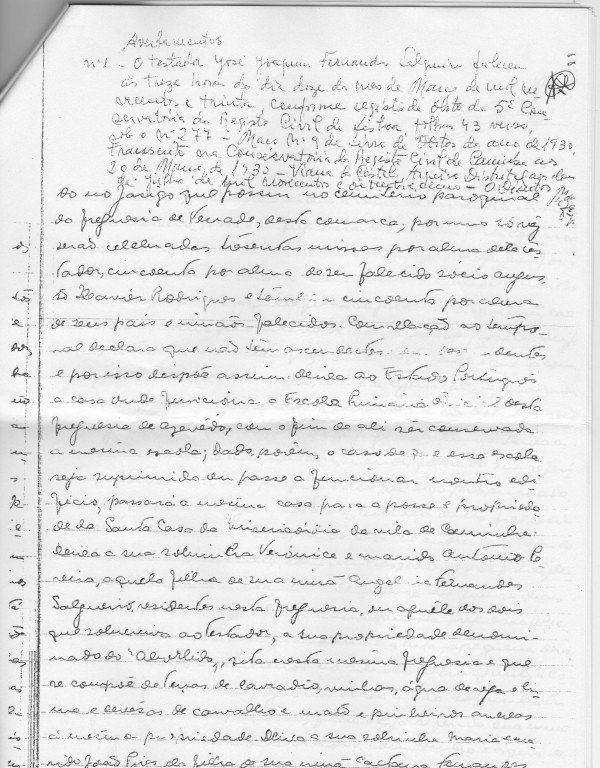 Averbamentos
nº 1 - O testador José Joaquim Fernandes Salgueiro faleceu
às treze horas do dia doze do mes de Março de mil no
vecentos e trinta, conforme registo de obito da 5ª Con
servatoria do Registo Civil de Lisboa folhas 43 verso
sob o nº 277 - Março nº 9 do livro de obitos do ano de 1930
Transcrito na Conservatoria do Registo Civil de Caminha aos
20 de Março de 1930 - Viana do Castelo, Arquivo Distrital aos
de Julho de mil novecentos e - O Director
do no jazigo que possui no cemiterio paroquial
da freguesia de Venade, desta comarca, por uma só vez
serão celebradas tresentas missas por alma dele tes-
tador, cincoenta por alma de seu falecido sócio Augus-
to Xavier Rodrigues e cincoenta por alma
de seus pais e irmãos falecidos. Com relação ao tempo-
ral declara que não tem ascendentes dentes
e por isso dispõe assim: deixa ao Estado Português
a casa onde funciona a Escola Primaria desta
freguesia de Azevedo, com o fim de ali ser conservada
a mesma escola; dado, porém, o caso de que essa escola
seja suprimida ou passe a funcionar noutro edi-
fício, passará a mesma casa para a posse e proprieda-
de da Santa Casa da Misericórdia da vila de Caminha:
deixa a sua sobrinha Verónica e marido António Pe-
reira, aquela filha de sua irmã Angelina Fernandes
Salgueiro, residentes nesta freguesia, ou aquele dos dois
que sobreviva ao testador, a sua propriedade denomi-
nada do sita nesta mesma freguesia e que
se compõe de terras de lavradio, vinhas, agua de rega e li-
ma e devesas de carvalho e mato e pinheiros anexas
á mesma propriedade. Deixa a sua sobrinha Maria e ma-
rido João Pires da filha de sua irmã Caetana Fernandes